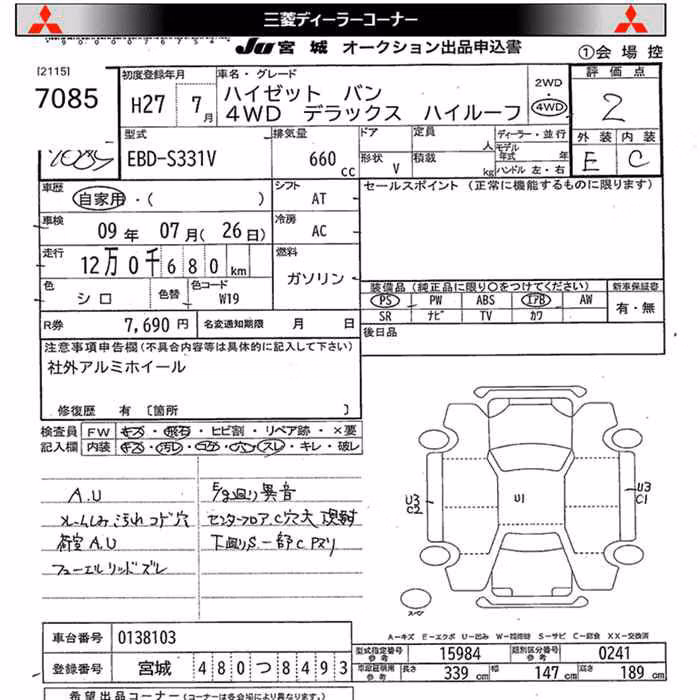 三菱ディーラーコーナー
JU 宮城 オークション出品申込書
①会場控
[2115]
7085
初度登録年月
H27 7月
車名・グレード
ハイゼット バン
4WD デラックス ハイルーフ
2WD
・
4WD
評価点
2
外装 内装
E C
型式
EBD-S331V
排気量
660 cc
ドア
形状 V
定員 人
積載 kg
ディーラー・並行
モデル年式 年
ハンドル 左・右
車歴
自家用・( )
シフト
AT
セールスポイント (正常に機能するものに限ります)
車検
09年 07月( 26日)
冷房
AC
走行
12万0千680km
燃料
ガソリン
色
シロ
色替
色コード
W19
装備品(純正品に限り○をつけてください)
新車保証書
PS PW ABS エアB AW
SR ナビ TV カワ
有・無
R券 7,690円 名変通知期限 月 日
後日品
注意事項申告欄(不具合内容等は具体的に記入して下さい)
社外アルミホイール
修復歴 有 〔箇所 〕
検査員 FW キズ・飛石・ヒビ割・リペア跡・×要
記入欄 内装 キズ・汚れ・コゲ・穴・スレ・キレ・破レ
A.U
ルームしみ汚れコゲ穴
荷室A.U
フューエルリッドズレ
E/g廻り異音
センターフロアC穴大
下廻りS.一部C
U1
U3
C2
U3
C1
A-キズ E-エクボ U-凹み W-補修跡 S-サビ C-腐食 XX-交換済
車台番号 0138103
登録番号 宮城 480つ8493
型式指定番号
参考
15984
類別区分番号
参考
0241
参考 長さ 339cm 幅 147cm 高さ 189cm
希望出品コーナー(コーナーは各会場により異なります。)